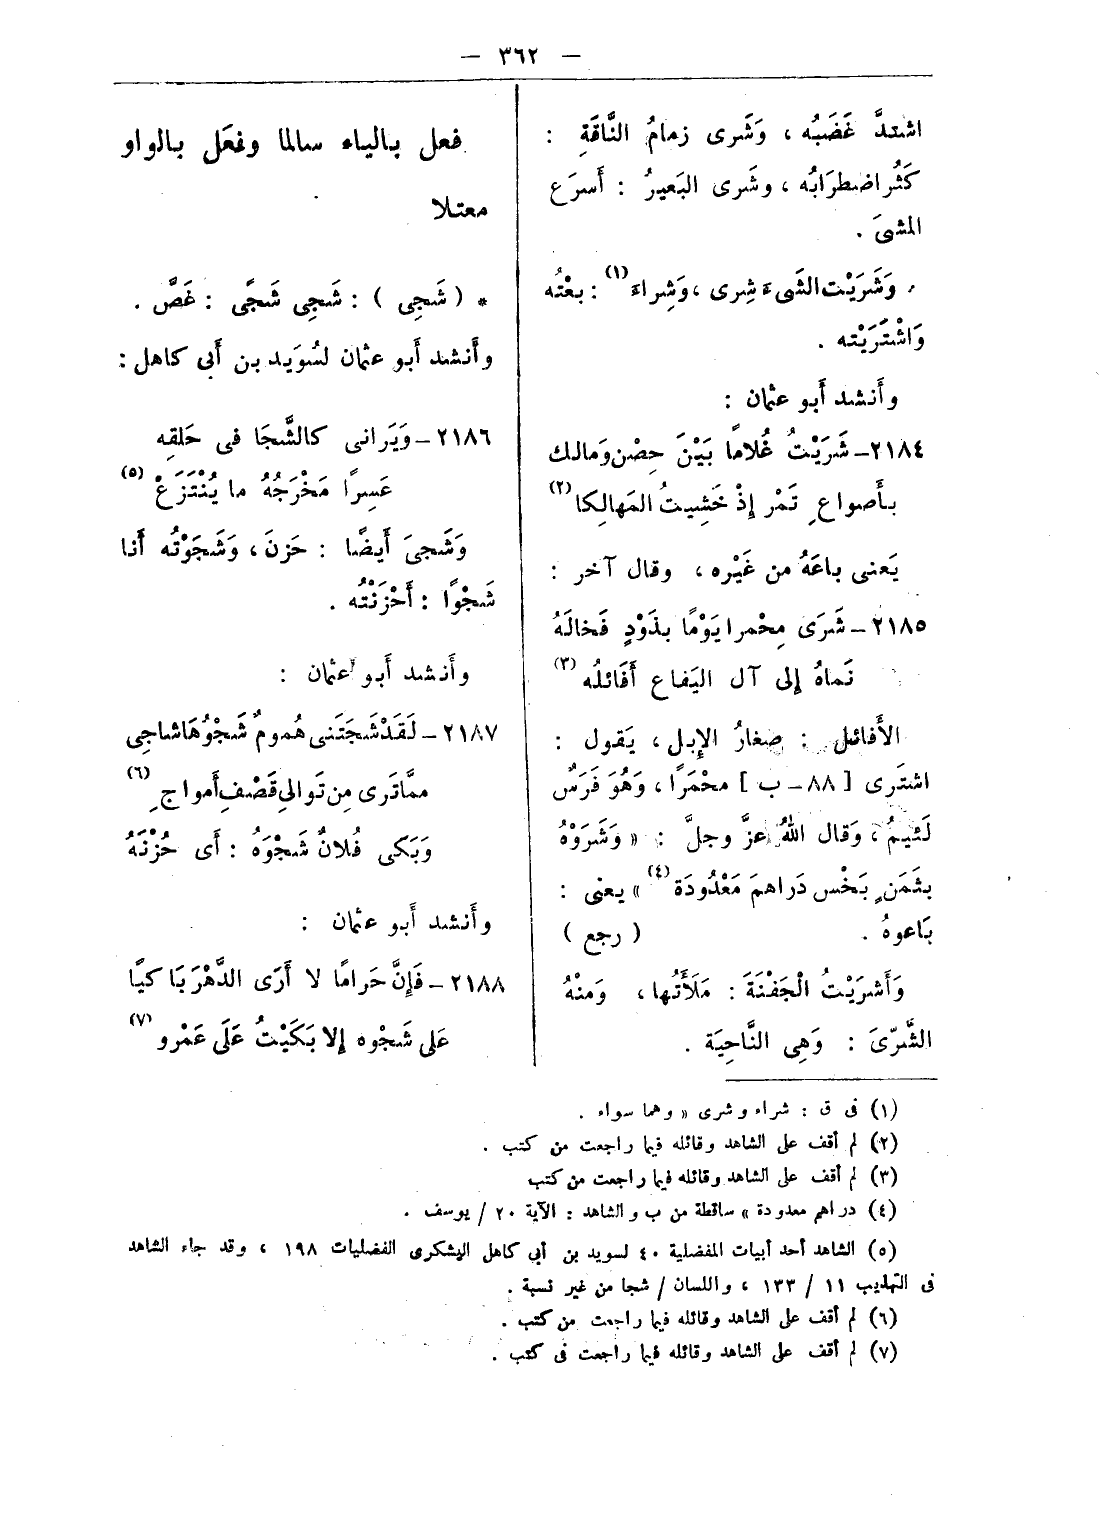 — ٣٦٢ —
اشتدَّ غَضَبُه ، وَشَرى زمامُ النَّاقَةِ :
كَثُر اضطرَابُه ، وشَرى البَعيرُ : أَسرَع
المشىَ .
وَشَرَيْت الشَّىءَ شِرى ، وَشِراءَ (١) : بعْتُه
وَاشْتَرَيْته .
وأَنشد أَبو عثمان :
٢١٨٤ – شَرَيْتُ غُلامًا بَيْنَ حِصْن وَمالك
بأَصواعِ تَمْر إذْ خَشِيتُ المَهالِكا (٢)
يَعنى باعَهُ من غَيْره ، وقال آخر :
٢١٨٥ – شَرَى مِحْمرا يَوْمًا بذَوْدٍ فَخالَهُ
نَماهُ إلى آل اليَفاع أَفَائلُه (٣)
الأَفائل : صغارُ الإبل ، يَقول :
اشتَرى [ ٨٨ – ب ] محْمَرًا ، وَهُوَ فَرَسٌ
لَئيمُ ، وَقال اللهُ عزَّ وجلَّ : « وَشَرَوْهُ
بثَمَنٍ بَخْس دَراهمَ مَعْدُودَة (٤) » يعنى :
بَاعوهُ . ( رجع )
وَأَشرَيْتُ الْجَفْنَةَ : مَلَأَتُها ، وَمنْهُ
الشَّرّىَ : وَهِى النَّاحِيَة .
فعل بالياء سالما وفعَل بالواو
معتلا
* ( شَجِى ) : شَجِى شَجًى : غَصَّ .
وأَنشد أَبو عثمان لسُوَيد بن أَبى كاهل :
٢١٨٦ – وَيَرانى كالشَّجَا فى حَلقِه
عَسِرًا مَخْرَجُهُ ما يُنْتَزَعْ (٥)
وَشَجىَ أَيضًا : حَزنَ ، وَشَجَوْتُه أَنا
شَجْوًا : أَحْزَنْتُه .
وأَنشد أَبو عثمان :
٢١٨٧ – لَقَدْ شَجَتَنى هُمومٌ شَجْوُهَا شاجى
ممَّا تَرى مِن تَوالىِ قَصْفِ أَمواجِ (٦)
وَبَكى فُلانٌ شَجْوَهُ : أَى حُزْنَهُ
وأَنشد أَبو عثمان :
٢١٨٨ – فَإنَّ حَرامًا لا أَرَى الدَّهْرَ بَاكيًا
عَلى شَجْوه إلا بَكَيْتُ عَلَى عَمْرو (٧)
(١) فى ق : شراء وشرى « وهما سواء .
(٢) لم أقف على الشاهد وقائله فيما راجعت من كتب .
(٣) لم أقف على الشاهد وقائله فيما راجعت من كتب
(٤) دراهم معدودة » ساقطة من ب والشاهد : الآية ٢٠ / يوسف .
(٥) الشاهد أحد أبيات المفضلية ٤٠ لسويد بن أبى كاهل اليشكرى الفضليات ١٩٨ ، وقد جاء الشاهد
فى التهذيب ١١ / ١٣٣ ، واللسان / شجا من غير نسبة .
(٦) لم أقف على الشاهد وقائله فيما راجعت من كتب .
(٧) لم أقف على الشاهد وقائله فيما راجعت فى كتب .